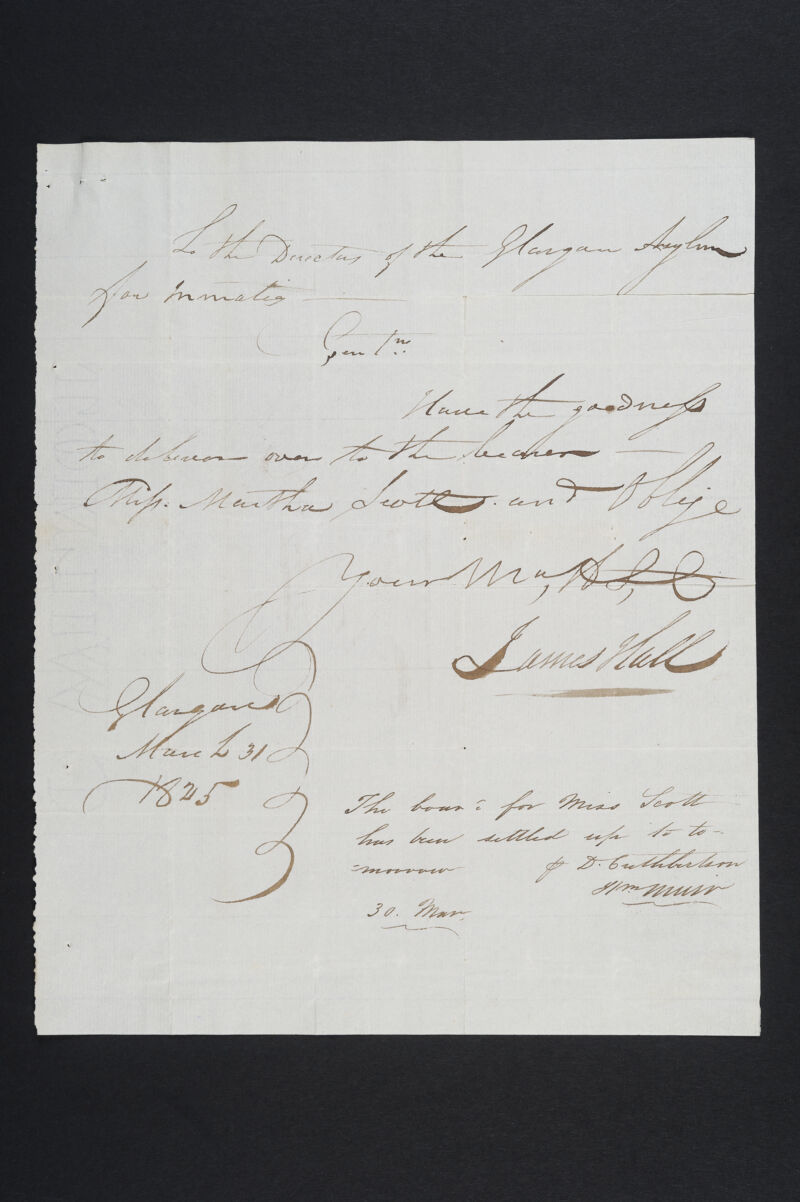 To the Directors of the Glasgow Asylum
for Inmatics
Gentn.
Have the goodness
to deliver over to the bearer
Miss. Martha Scott and Oblige
Your Mo, H S,
James Hall
Glasgow
March 31
1825
The board for Miss Scott
has been settled up to to-
=morrow p D. Cuthbertson
Wm Muir
30. Mar.